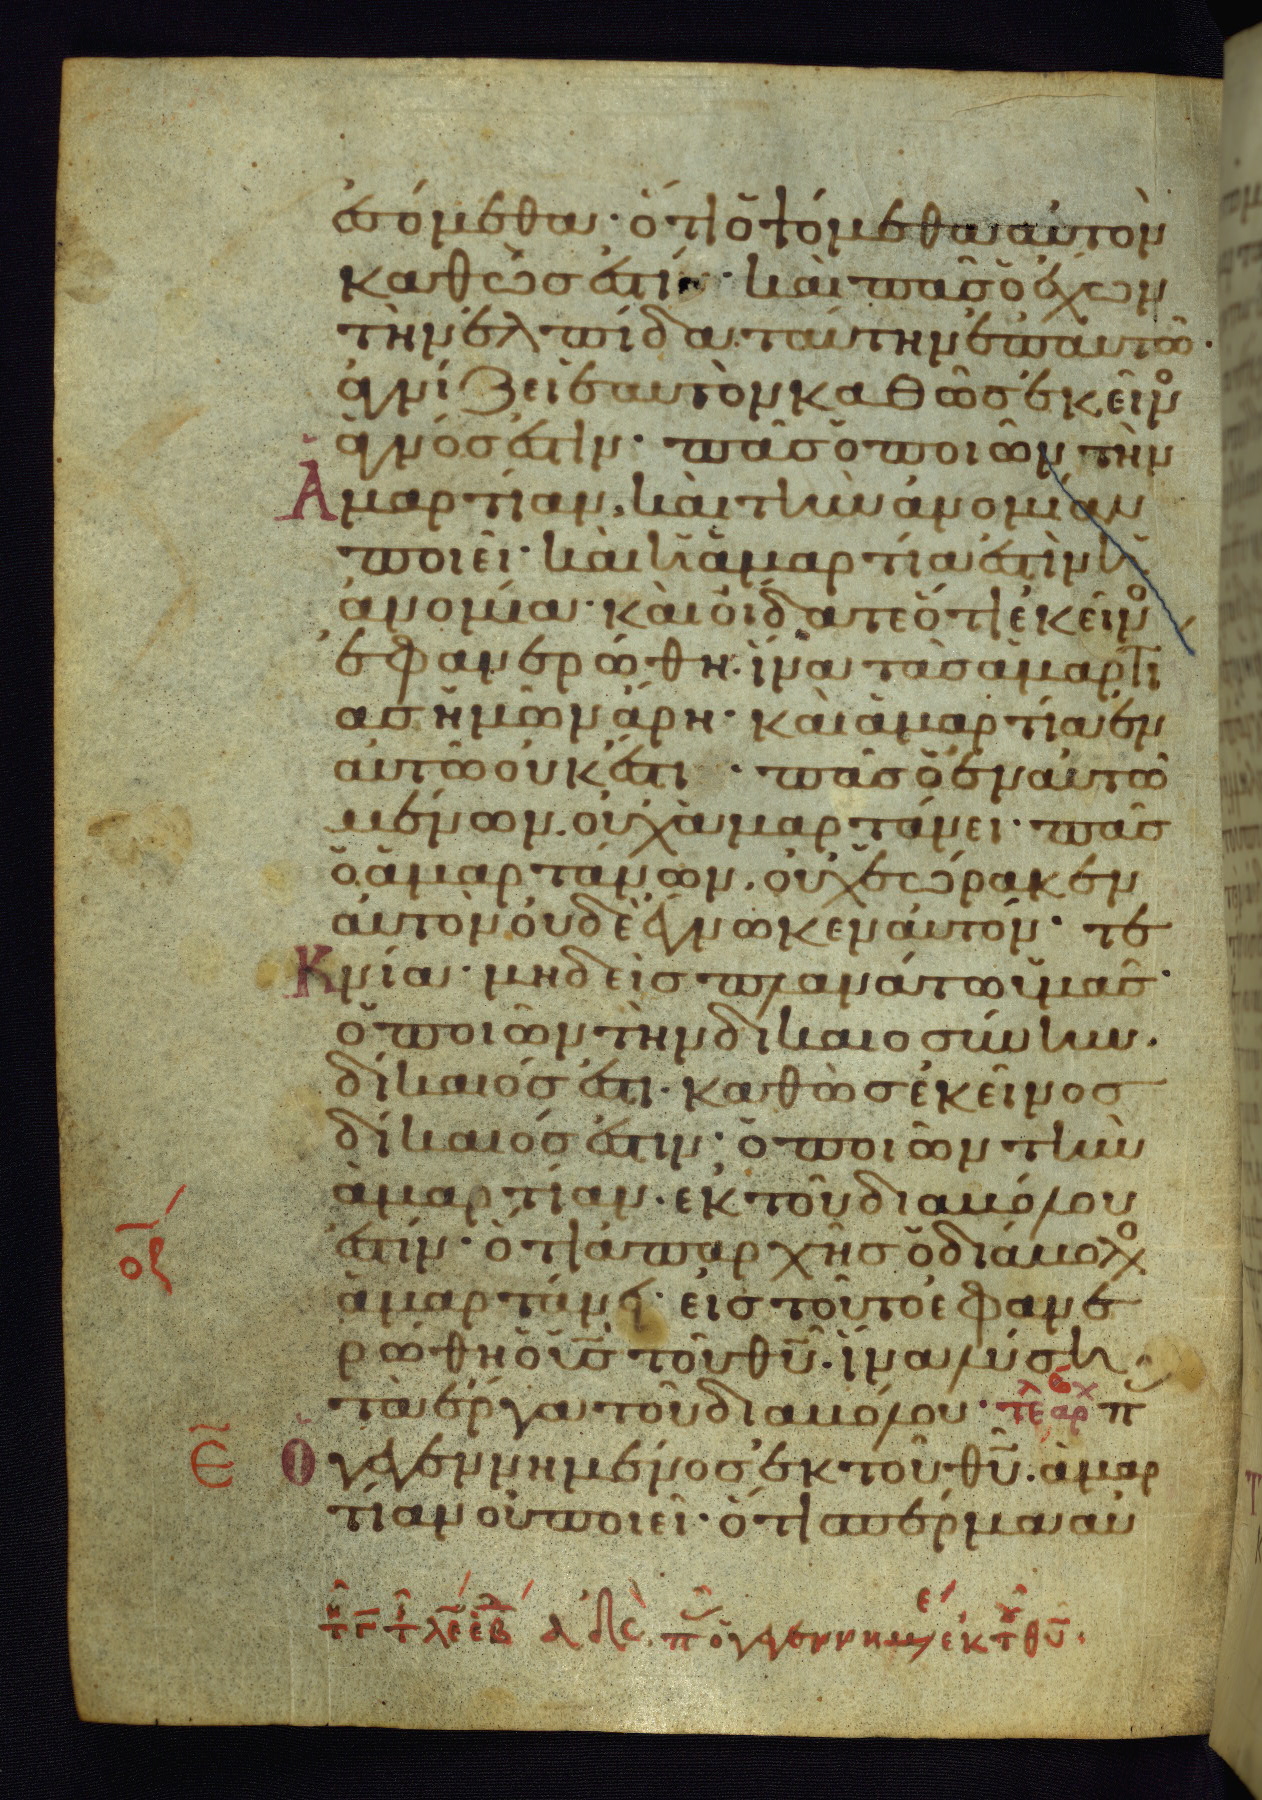 ἐσόμεθα· ὅτι ὀψόμεθα αὐτὸν
καθώς ἐστιν· καὶ πᾶς ὁ ἔχων
τὴν ἐλπίδα ταύτην ἐπ αὐτῶ·
ἁγνίζει ἑαυτὸν καθὼς ἐκεῖνο
ἁγνός ἐστιν· πᾶς ὁ ποιῶν τὴν
Ἁμαρτίαν, καὶ τὴν ἀνομίαν
ποιεῖ· καὶ ἡ ἁμαρτία ἐστὶν ἡ
ἀνομία· καὶ οἴδατε ὅτι ἐκεῖνο
ἐφανερώθη. ἵνα τὰς ἁμαρτι
ας ἡμῶν ἄρη· καὶ ἁμαρτία ἐν
αὐτῶ οὐκ ἔστι · πᾶς ὁ ἐν αὐτῶ
μένων. οὐχ ἁμαρτάνει· πᾶς
ὁ ἁμαρτάνων. οὐχ ἑώρακεν
αὐτὸν οὐδὲ ἔγνωκεν αὐτόν· τε
Κνία· μηδεὶς πλανάτω ὑμᾶς·
ὁ ποιῶν τὴν δικαιοσύνην.
δίκαιός ἐστι· καθὼς ἐκεῖνος
δίκαιός ἐστιν· ὁ ποιῶν τὴν
ἁμαρτίαν. ἐκ τοῦ διαβόλου
ἐστίν· ὅτι ἀπαρχῆς ὁ διάβολο
ἁμαρτάνει· εἰς τοῦτο ἐφανε
ρώθη ὁ υς τοῦ θυ. ἵνα λύση
τὰ ἔργα τοῦ διαβόλου· τε αρχ π
Ὁ γεγεννημένος ἐκ τοῦ θυ. ἁμαρ
τίαν οὐ ποιεῖ· ὅτι σπέρμα αὐ
οϛ
Ε
π ὁ γεγεννημε ἐκ τ θυ.